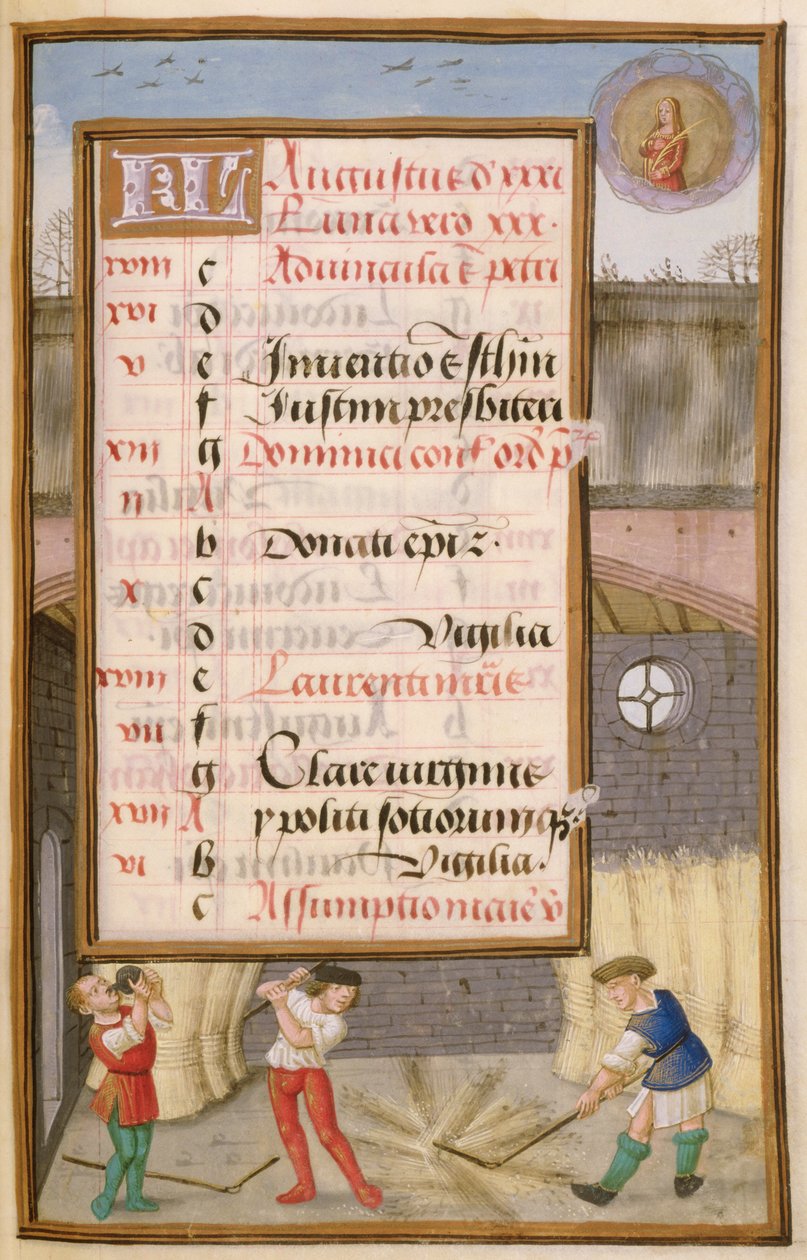 KL Augustus d xxxi
Luna vero xxx.
xviii c Advincula s petri
xvi d
v e Inventio s steph
f Justini presbiteri
xiii g Dominici conf ord p
ii A
b Donati epi z.
x c
d Vigilia
xviii e Laurentii mris
vii f
g Clare virginis
xvii A ypoliti sotiorumq
vi b Vigilia.
c Assumptio marie v